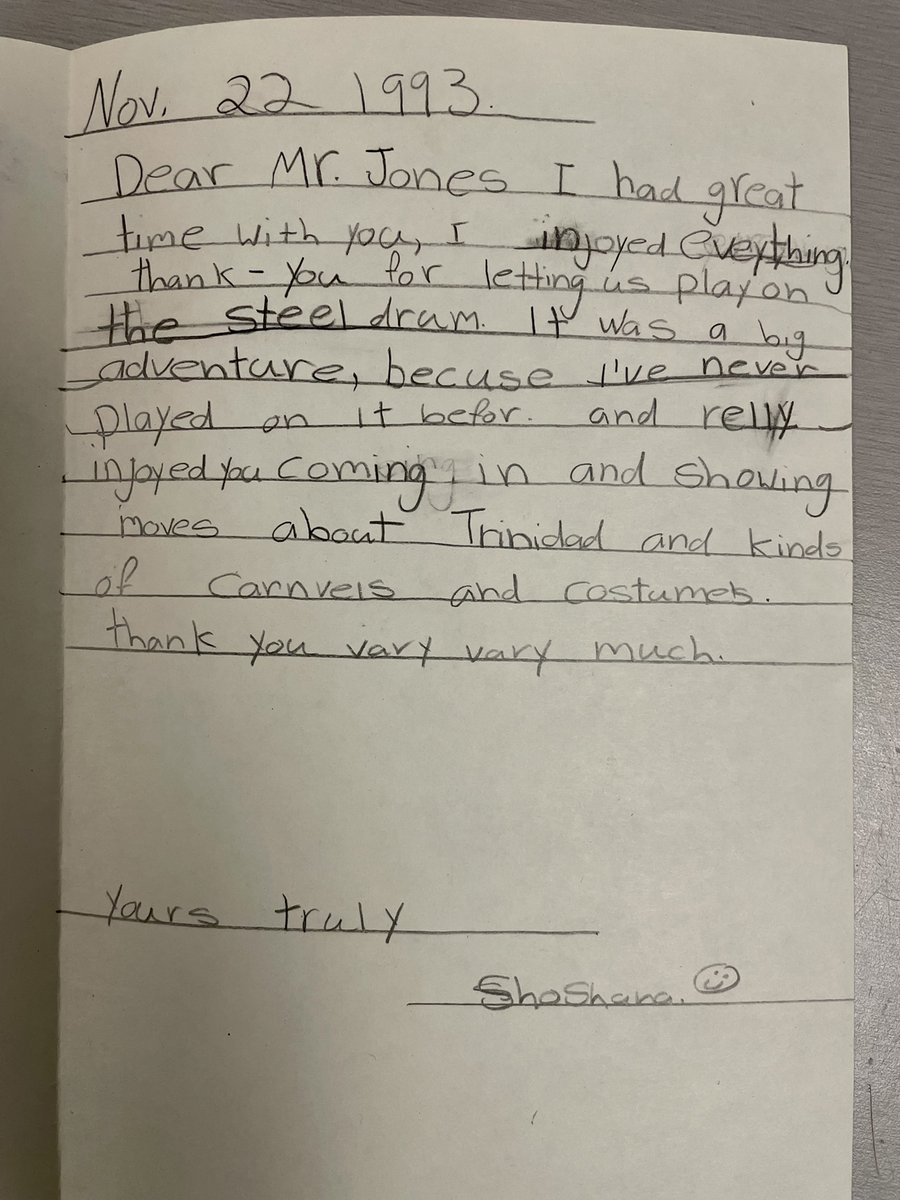 Nov. 22 1993.
Dear Mr. Jones I had great
time with you, I injoyed eveything.
thank-you for letting us play on
the steel drum. It was a big
adventure, becuse I've never
played on it befor. and relly
injoyed you coming in and showing
moves about Trinidad and kinds
of Carnvels and costumes.
thank you vary vary much.
Yours truly
ShoShana.